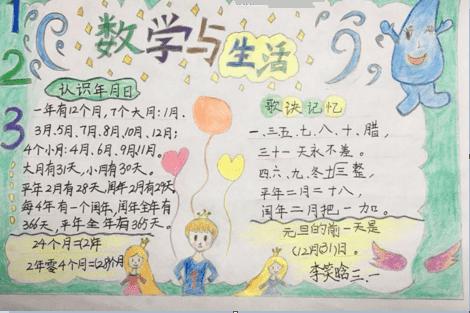 1
2
3
数学与生活
认识年月日
一年有12个月,7个大月:1月、
3月、5月、7月、8月、10月、12月;
4个小月:4月、6月、9月、11月。
大月有31天,小月有30天。
平年2月有28天,闰年2月有29天。
每4年有一个闰年,闰年全年有
366天,平年全年有365天。
24个月=(2)年
2年零4个月=(28)个月
歌诀记忆
一、三、五、七、八、十、腊,
三十一天永不差。
四、六、九、冬三十整,
平年二月二十八,
闰年二月把一加。
元旦的前一天是
(12月31)日。
李笑晗 三.一